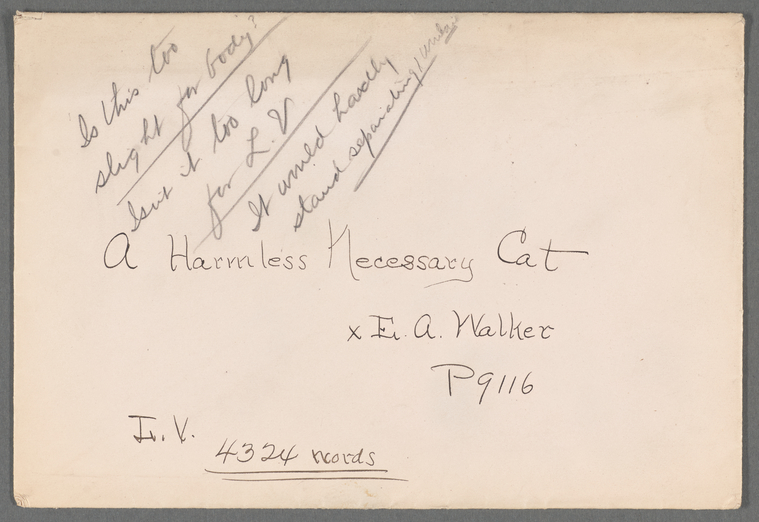 Is this too
slight for body?
Isn't it too long
for L. V
It would hardly
stand separating/
A Harmless Necessary Cat
x E. A. Walker
P9116
L. V.
4324 words